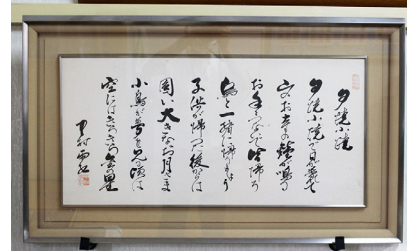 夕焼小焼
夕焼小焼で日が暮れて
山のお寺の鐘が鳴る
お手々つないで皆帰る
烏と一緒に帰りましょう
子供が帰った後からは
圓い大きなお月さま
小鳥が夢を見る頃は
空にはきらきら金の星
中村雨紅